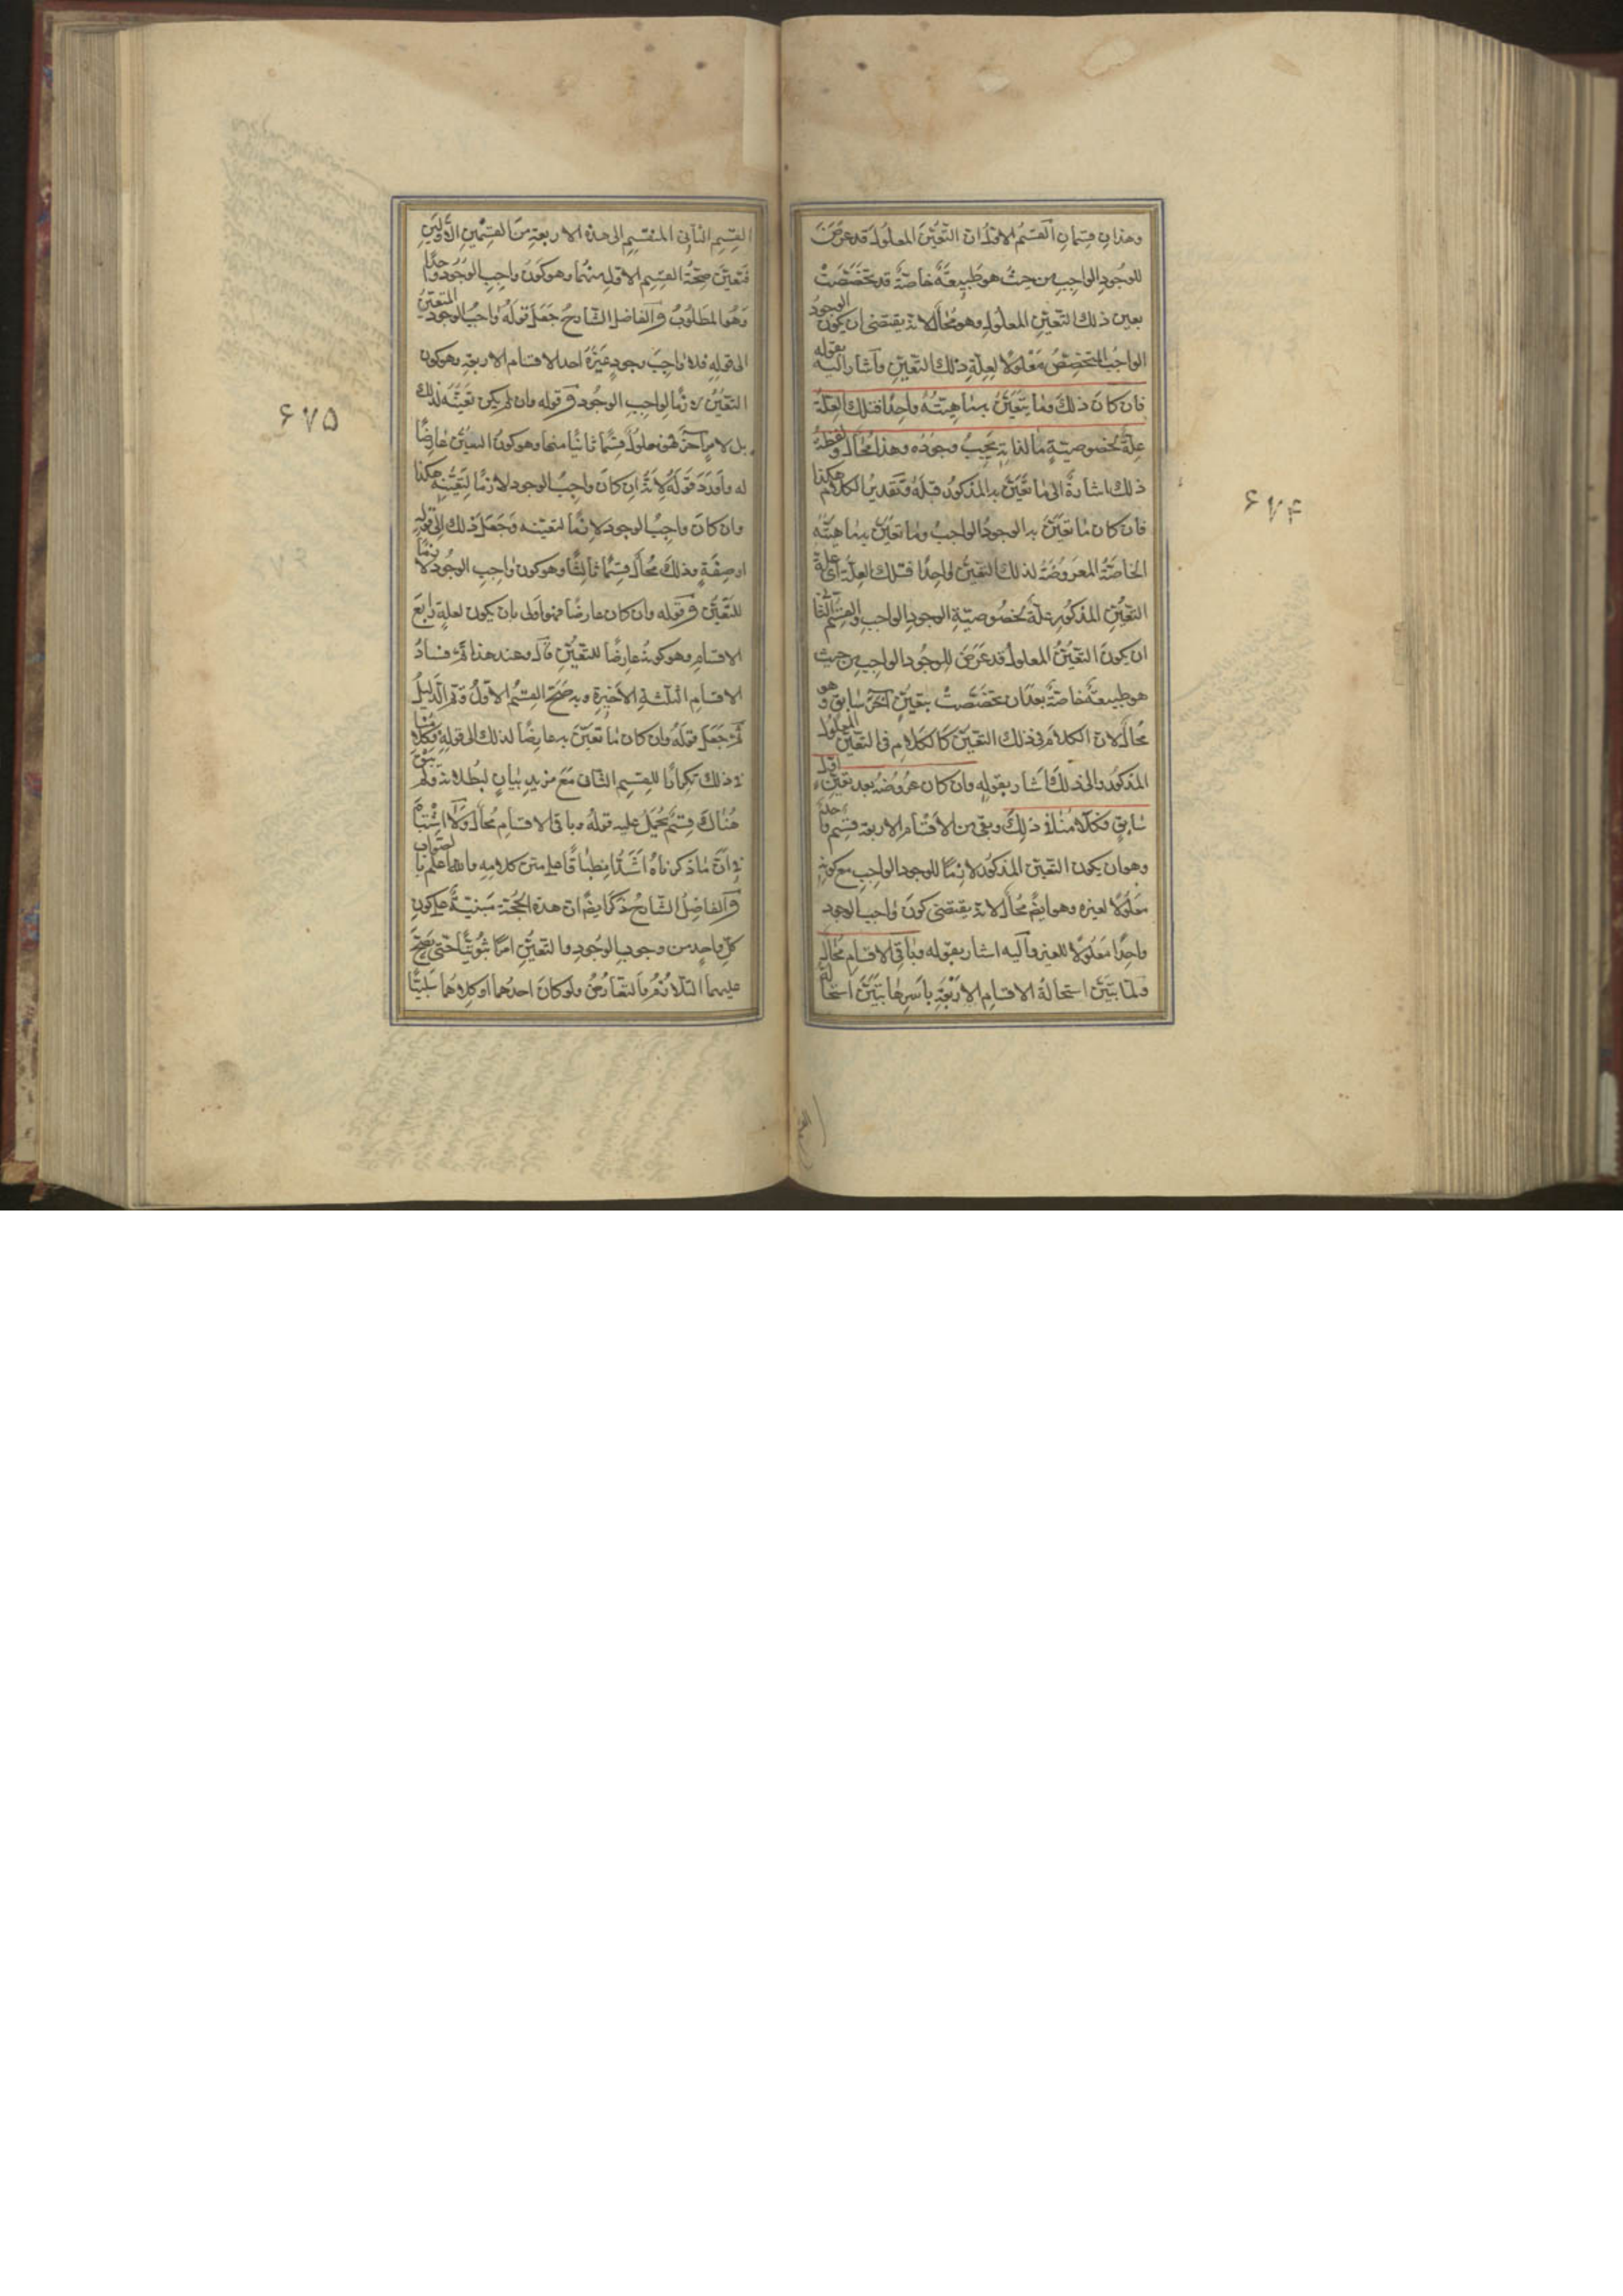 وهذان قسمان القسم الاول ان التعين المعلول قد عرض
للوجود الواجب من حيث هو طبيعة خاصة قد تخصصت
بعين ذلك التعين المعلول وهو محال لانه يقتضى ان يكون الوجود
الواجب المتخصص معلولا لعلة ذلك التعين واشار اليه بقوله
فان كان ذلك وما يتعين به ماهيته واحدا فتلك العلة
علة لخصوصية ما لذاته يجب وجوده وهذا محال ولفظة
ذلك اشارة الى ما تعين به المذكور قبله وتقدير الكلام هكذا
فان كان ما تعين به الوجود الواجب وما تعين به ماهيته
الخاصة المعروضة لذلك التعين واحدا فتلك العلة اى علة
التعين المذكور علة لخصوصية الوجود الواجب والقسم الثانى
ان يكون التعين المعلول قد عرض للوجود الواجب من حيث
هو طبيعة خاصة بعد ان تخصصت بتعين آخر سابق وهو
محال لان الكلام فى ذلك التعين كالكلام فى التعين المعلول
المذكور والى ذلك اشار بقوله وان كان عروضه بعد تعين اول
سابق فكلامنا فى ذلك وبقى من الاقسام الاربعة قسم واحد
وهو ان يكون التعين المذكور لازما للوجود الواجب مع كونه
معلولا لغيره وهو ايضا محال لانه يقتضى كون واجب الوجود
واحدا معلولا للغير واليه اشار بقوله وباقى الاقسام محال
ولما تبين استحالة الاقسام الاربعة باسرها تبين استحالة
۶۷۴
القسم الثانى المنقسم الى هذه الاربعة من القسمين الاولين
فتعين صحة القسم الاول منهما وهو كون واجب الوجود واحدا
وهو المطلوب والفاضل الشارح جعل قوله واجب الوجود المتعين
الى قوله فلا واجب وجود غيره احد الاقسام الاربعة وهو كون
التعين لازما لواجب الوجود وقوله وان لم يكن تعينه لذلك
بل لامر آخر فهو معلول قسما ثانيا منها وهو كون التعين عارضا
له واورد قوله لانه ان كان واجب الوجود لازما لتعينه هكذا
وان كان واجب الوجود لازما لتعينه وجعل ذلك الى قوله
او صفة وذلك محال قسما ثالثا وهو كون واجب الوجود لازما
للتعين وقوله وان كان عارضا فهو اولى بان يكون لعلة رابع
الاقسام وهو كونه عارضا للتعين قال وعند هذا تم فساد
الاقسام الثلثة الاخيرة وبه صح القسم الاول وتم الدليل
ثم جعل قوله وان كان ما تعين به عارضا لذلك الى قوله فكلامنا
فى ذلك تكرارا للقسم الثانى مع مزيد بيان لبطلانه ولم يبق
هناك قسم يحمل عليه قوله وباقى الاقسام محال ولا اشتباه
فى ان ما ذكرناه اشد انطباقا على متن كلامه والله اعلم بالصواب
والفاضل الشارح ذكر ايضا ان هذه الحجة مبنية على كون
كل واحد من وجوب الوجود والتعين امرا ثبوتيا حتى يصح
عليهما التلازم والتعارض ولو كان احدهما او كلاهما سلبيا
۶۷۵